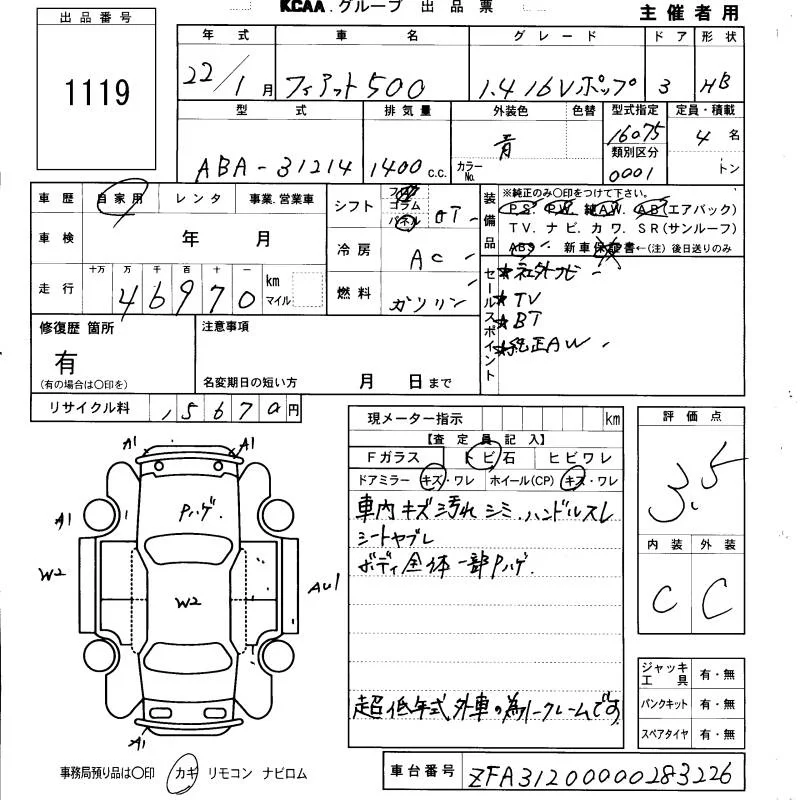 KCAA.グループ 出品票
主催者用
出品番号
1119
年式 車名 グレード ドア 形状
22/1月 フィアット500 1.4 16Vポップ 3 HB
型式 排気量 外装色 色替 型式指定 定員・積載
ABA-31214 1400c.c. 青 カラーNo. 16075 4名
類別区分
0001 トン
車歴 自家用 レンタ 事業.営業車
車検 年 月
走行 十万 万 千 百 十 一
46970 km マイル
シフト フロア コラム パネル
冷房 AC
燃料 ガソリン
装備品 ※純正のみ○印をつけて下さい。
P.S. P.W. 純A.W. A.B(エアバック)
TV. ナビ. カワ. SR(サンルーフ)
ABS 新車保証書←(注)後日送りのみ
セールスポイント
★社外ナビ
★TV
★BT
★純正AW
修復歴 箇所 注意事項
有
(有の場合は○印を) 名変期日の短い方 月 日まで
リサイクル料 15670円
現メーター指示 km
【査定員記入】
Fガラス トビ石 ヒビワレ
ドアミラー キズ・ワレ ホイール(CP) キズ・ワレ
車内キズ汚れシミ.ハンドルスレ
シートヤブレ
ボディ全体一部Pハゲ.
超低年式外車の為ノークレームです
評価点
3.5
内装 外装
C C
ジャッキ工具 有・無
パンクキット 有・無
スペアタイヤ 有・無
A1 A1
Pハゲ.
A1 A1
W2
W2
AU1
A1
事務局預り品は○印 カギ リモコン ナビロム
車台番号 ZFA31200000283226